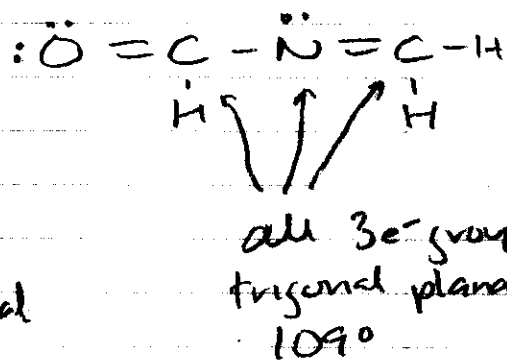 :Ö=C-N̈=C-H
H H
all 3e⁻ group
trigonal plana
109°
al